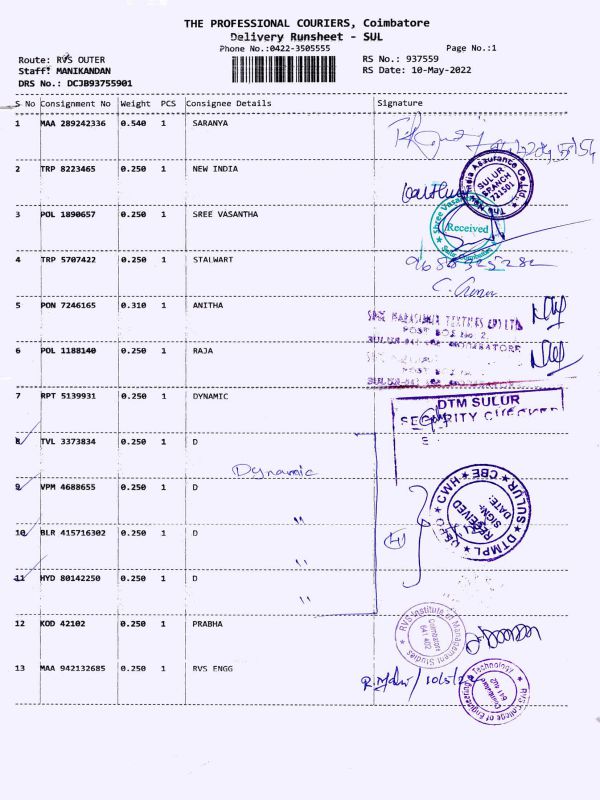 THE PROFESSIONAL COURIERS, Coimbatore
Delivery Runsheet - SUL
Phone No.:0422-3505555
Page No.:1
Route: RVS OUTER
RS No.: 937559
Staff: MANIKANDAN
RS Date: 10-May-2022
DRS No.: DCJB93755901
S No Consignment No Weight PCS Consignee Details Signature
1 MAA 289242336 0.540 1 SARANYA
2 TRP 8223465 0.250 1 NEW INDIA
SULUR BRANCH 721501
3 POL 1890657 0.250 1 SREE VASANTHA
Received
4 TRP 5707422 0.250 1 STALWART
5 PON 7246165 0.310 1 ANITHA
POST BOX No 2.
6 POL 1188140 0.250 1 RAJA
7 RPT 5139931 0.250 1 DYNAMIC
DTM SULUR
SECURITY
8 TVL 3373834 0.250 1 D
Dynamic
9 VPM 4688655 0.250 1 D
CWH ★ CBE ★ SULUR ★ DTMPL ★
RECEIVED
SIGN:
DATE:
10 BLR 415716302 0.250 1 D
11 HYD 80142250 0.250 1 D
12 KOD 42102 0.250 1 PRABHA
RVS Institute of Management Studies
Coimbatore
641 402
13 MAA 942132685 0.250 1 RVS ENGG
RVS College of Engineering Technology
Coimbatore
641 402